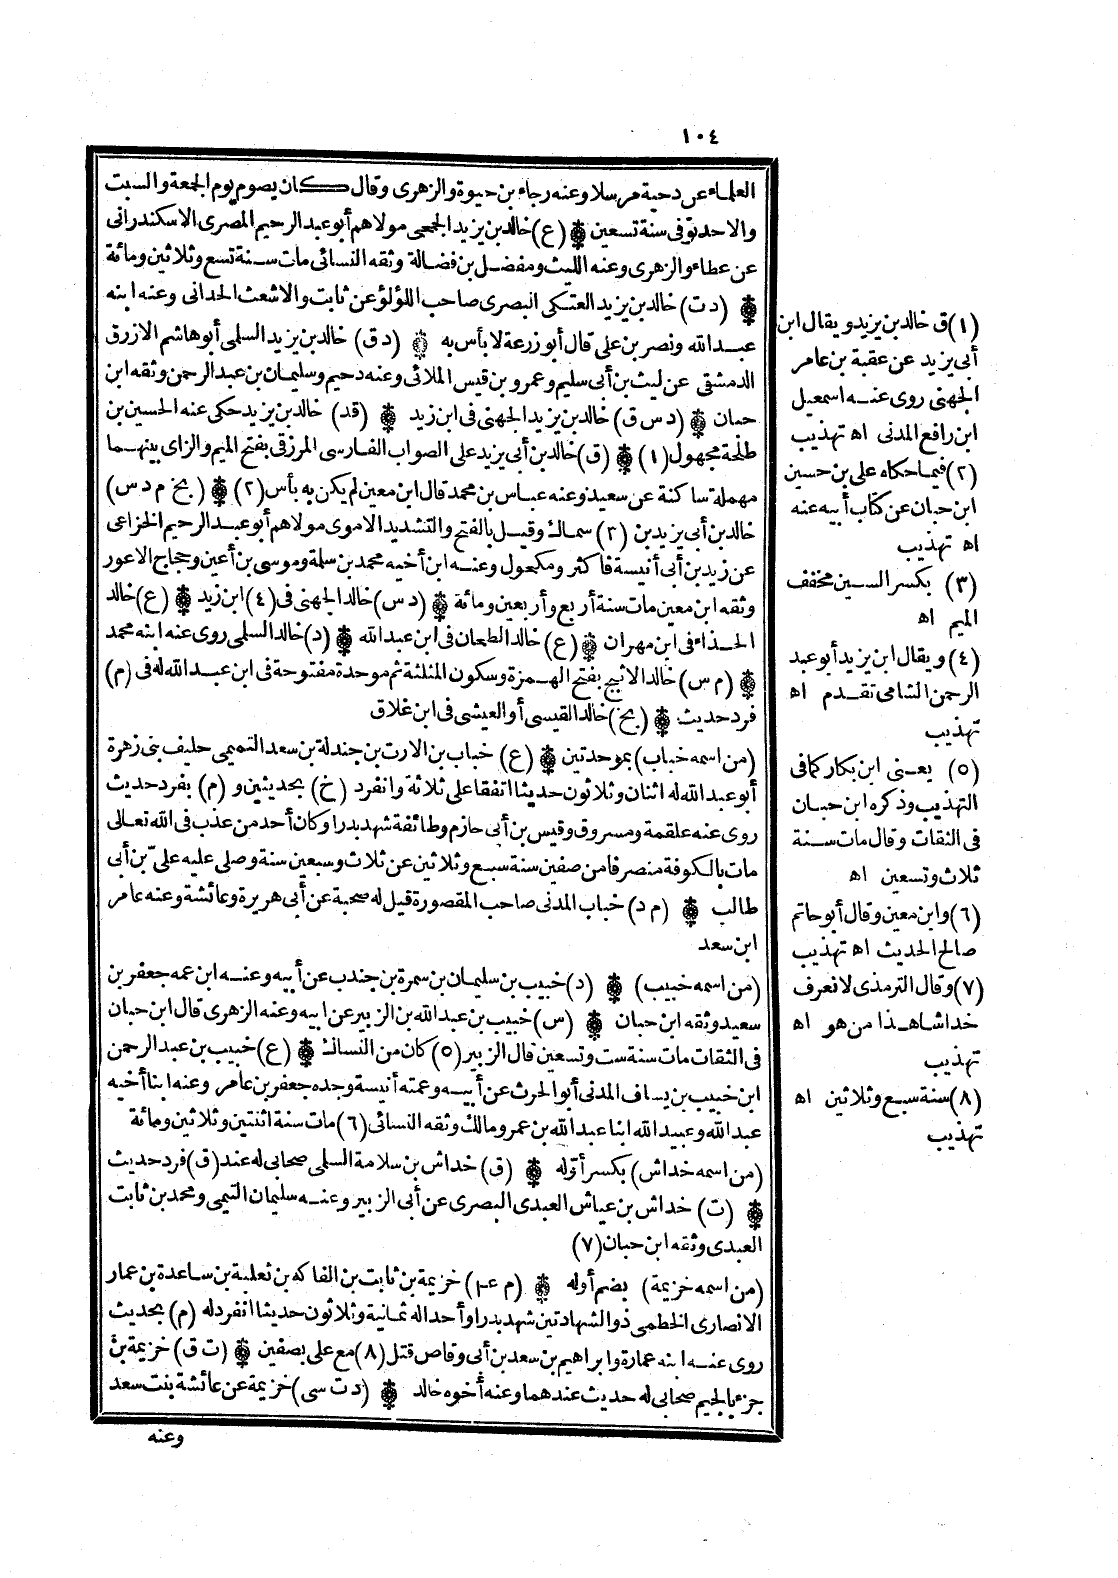 ١٠٤
العلماء عن دحية مرسلا وعنه رجاء بن حيوة والزهرى وقال كان يصوم يوم الجمعة والسبت
والاحد توفى سنة تسعين (ع) خالد بن يزيد الجمحى مولاهم أبو عبد الرحيم المصرى الاسكندرانى
عن عطاء والزهرى وعنه الليث ومفضل بن فضالة وثقه النسائى مات سنة تسع وثلاثين ومائة
(د ت) خالد بن يزيد العتكى البصرى صاحب اللؤلؤ عن ثابت والاشعث الحدانى وعنه ابنه
عبد الله ونصر بن على قال أبو زرعة لا بأس به (د ق) خالد بن يزيد السلمى أبو هاشم الازرق
الدمشقى عن ليث بن أبى سليم وعمرو بن قيس الملائى وعنه دحيم وسليمان بن عبد الرحمن وثقه ابن
حبان (د س ق) خالد بن يزيد الجهنى فى ابن زيد (قد) خالد بن يزيد حكى عنه الحسين بن
طلحة مجهول (١) (ق) خالد بن أبى يزيد على الصواب الفارسى المزرقى بفتح الميم والزاى بينهما
مهملة ساكنة عن سعيد وعنه عباس بن محمد قال ابن معين لم يكن به بأس (٢) (بخ م د س)
خالد بن أبى يزيد بن (٣) سماك وقيل بالفتح والتشديد الاموى مولاهم أبو عبد الرحيم الخزاعى
عن زيد بن أبى أنيسة فأكثر ومكحول وعنه ابن أخيه محمد بن سلمة وموسى بن أعين وحجاج الاعور
وثقه ابن معين مات سنة أربع وأربعين ومائة (د س) خالد الجهنى فى (٤) ابن زيد (ع) خالد
الحذاء فى ابن مهران (ع) خالد الطحان فى ابن عبد الله (د) خالد السلمى روى عنه ابنه محمد
(م س) خالد الاثبج بفتح الهمزة وسكون المثلثة ثم موحدة مفتوحة فى ابن عبد الله له فى (م)
فرد حديث (بخ) خالد القيسى أو العيشى فى ابن غلاق
(من اسمه خباب) بموحدتين (ع) خباب بن الارت بن جندلة بن سعد التميمى حليف بنى زهرة
أبو عبد الله له اثنان وثلاثون حديثا اتفقا على ثلاثة وانفرد (خ) بحديثين و (م) بفرد حديث
روى عنه علقمة ومسروق وقيس بن أبى حازم وطائفة شهد بدرا وكان أحد من عذب فى الله تعالى
مات بالكوفة منصرفا من صفين سنة سبع وثلاثين عن ثلاث وسبعين سنة وصلى عليه علىّ بن أبى
طالب (م د) خباب المدنى صاحب المقصورة قيل له صحبة عن أبى هريرة وعائشة وعنه عامر
ابن سعد
(من اسمه خبيب) (د) خبيب بن سليمان بن سمرة بن جندب عن أبيه وعنه ابن عمه جعفر بن
سعيد وثقه ابن حبان (س) خبيب بن عبد الله بن الزبير عن ابيه وعنه الزهرى قال ابن حبان
فى الثقات مات سنة ست وتسعين قال الزبير (٥) كان من النساك (ع) خبيب بن عبد الرحمن
ابن خبيب بن يساف المدنى أبو الحرث عن أبيه وعمته أنيسة وجده جعفر بن عامر وعنه ابنا أخيه
عبد الله وعبيد الله ابنا عبد الله بن عمر ومالك وثقه النسائى (٦) مات سنة اثنتين وثلاثين ومائة
(من اسمه خداش) بكسر أوّله (ق) خداش بن سلامة السلمى صحابى له عند (ق) فرد حديث
(ت) خداش بن عياش العبدى البصرى عن أبى الزبير وعنه سليمان التيمى ومحمد بن ثابت
العبدى وثقه ابن حبان (٧)
(من اسمه خزيمة) بضم أوله (م عـ) خزيمة بن ثابت بن الفاكه بن ثعلبة بن ساعدة بن عمار
الانصارى الخطمى ذو الشهادتين شهد بدرا وأحدا له ثمانية وثلاثون حديثا انفرد له (م) بحديث
روى عنه ابنه عمارة وابراهيم بن سعد بن أبى وقاص قتل (٨) مع على بصفين (ت ق) خزيمة بن
جزء بالجيم صحابى له حديث عندهما وعنه أخوه خالد (د ت سى) خزيمة عن عائشة بنت سعد
وعنه
(١) ق خالد بن يزيد ويقال ابن
أبى يزيد عن عقبة بن عامر
الجهنى روى عنه اسمعيل
ابن رافع المدنى اه تهذيب
(٢) فيما حكاه على بن حسين
ابن حبان عن كتاب أبيه عنه
اه تهذيب
(٣) بكسر السين مخفف
الميم اه
(٤) ويقال ابن يزيد أبو عبد
الرحمن الشامى تقدم اه
تهذيب
(٥) يعنى ابن بكار كما فى
التهذيب وذكره ابن حبان
فى الثقات وقال مات سنة
ثلاث وتسعين اه
(٦) وابن معين وقال أبو حاتم
صالح الحديث اه تهذيب
(٧) وقال الترمذى لا نعرف
خداشا هذا من هو اه
تهذيب
(٨) سنة سبع وثلاثين اه
تهذيب